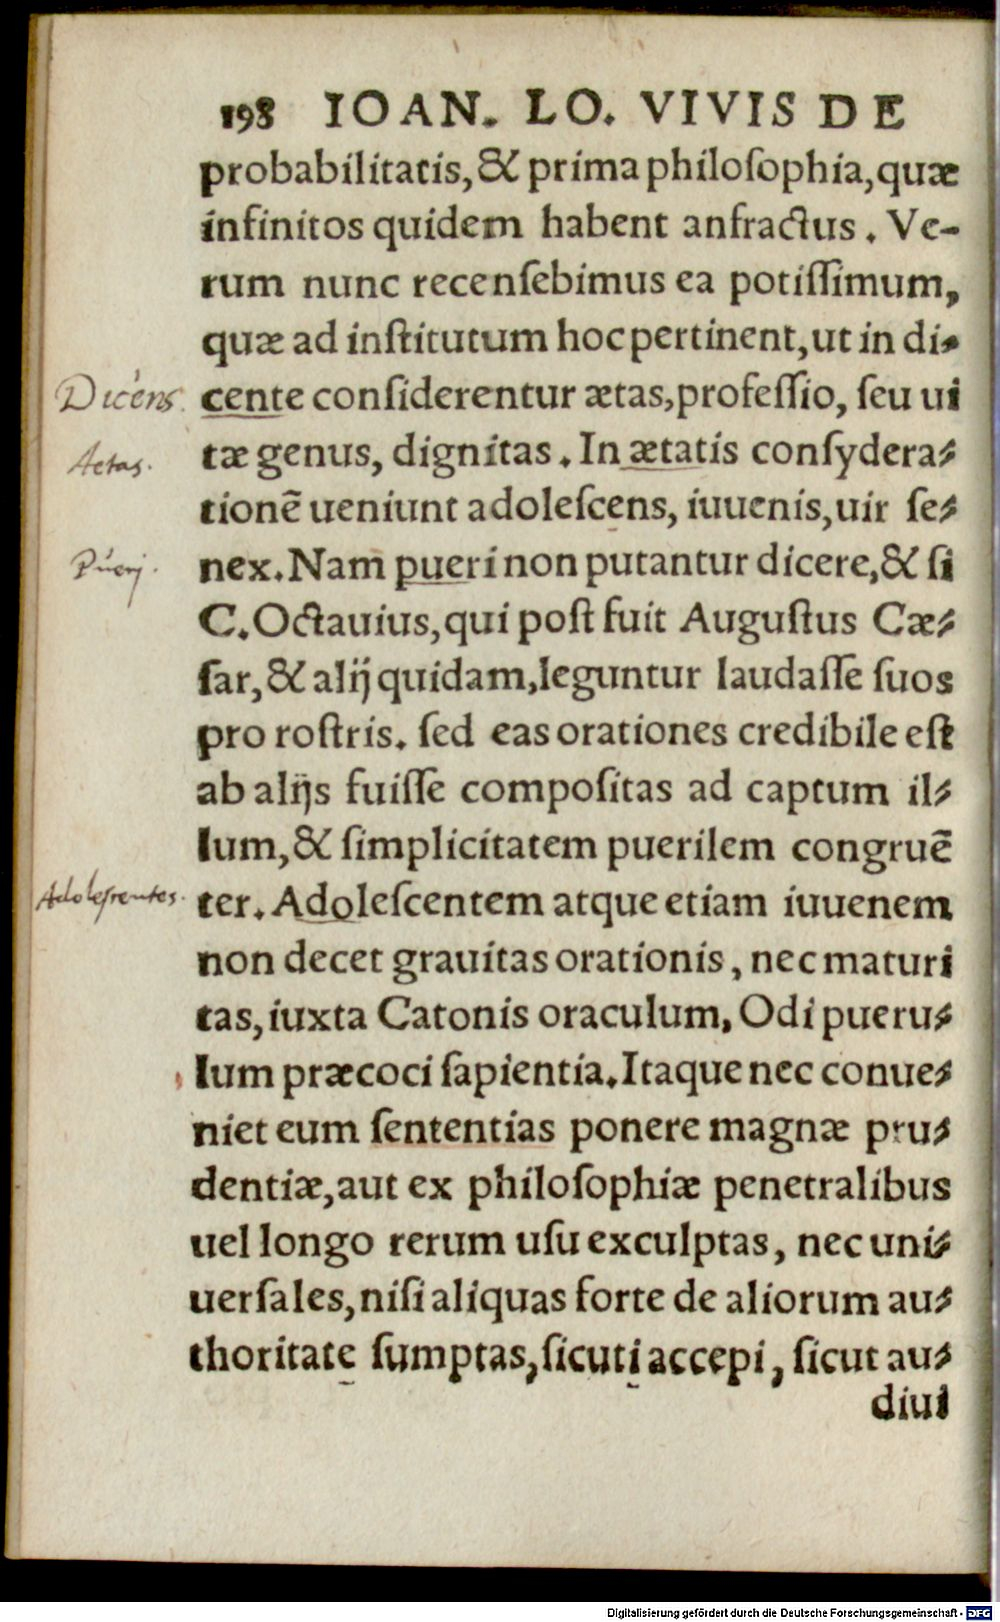 198 IOAN. LO. VIVIS DE
probabilitatis, & prima philoſophia, quæ
infinitos quidem habent anfractus. Ve-
rum nunc recenſebimus ea potiſſimum,
quæ ad inſtitutum hoc pertinent, ut in di-
Dicens.
cente conſiderentur ætas, profeſſio, ſeu ui
Aetas.
tæ genus, dignitas. In ætatis conſydera-
tionē ueniunt adoleſcens, iuuenis, uir ſe-
Pueri.
nex. Nam pueri non putantur dicere, & ſi
C. Octauius, qui poſt fuit Auguſtus Cæ-
ſar, & alij quidam, leguntur laudaſſe ſuos
pro roſtris. ſed eas orationes credibile eſt
ab alijs fuiſſe compoſitas ad captum il-
lum, & ſimplicitatem puerilem congruē
Adolescentes.
ter. Adoleſcentem atque etiam iuuenem
non decet grauitas orationis, nec maturi
tas, iuxta Catonis oraculum, Odi pueru-
lum præcoci ſapientia. Itaque nec conue-
niet eum ſententias ponere magnæ pru-
dentiæ, aut ex philoſophiæ penetralibus
uel longo rerum uſu exculptas, nec uni-
uerſales, niſi aliquas forte de aliorum au-
thoritate ſumptas, ſicuti accepi, ſicut au-
diui
Digitalisierung gefördert durch die Deutsche Forschungsgemeinschaft - DFG